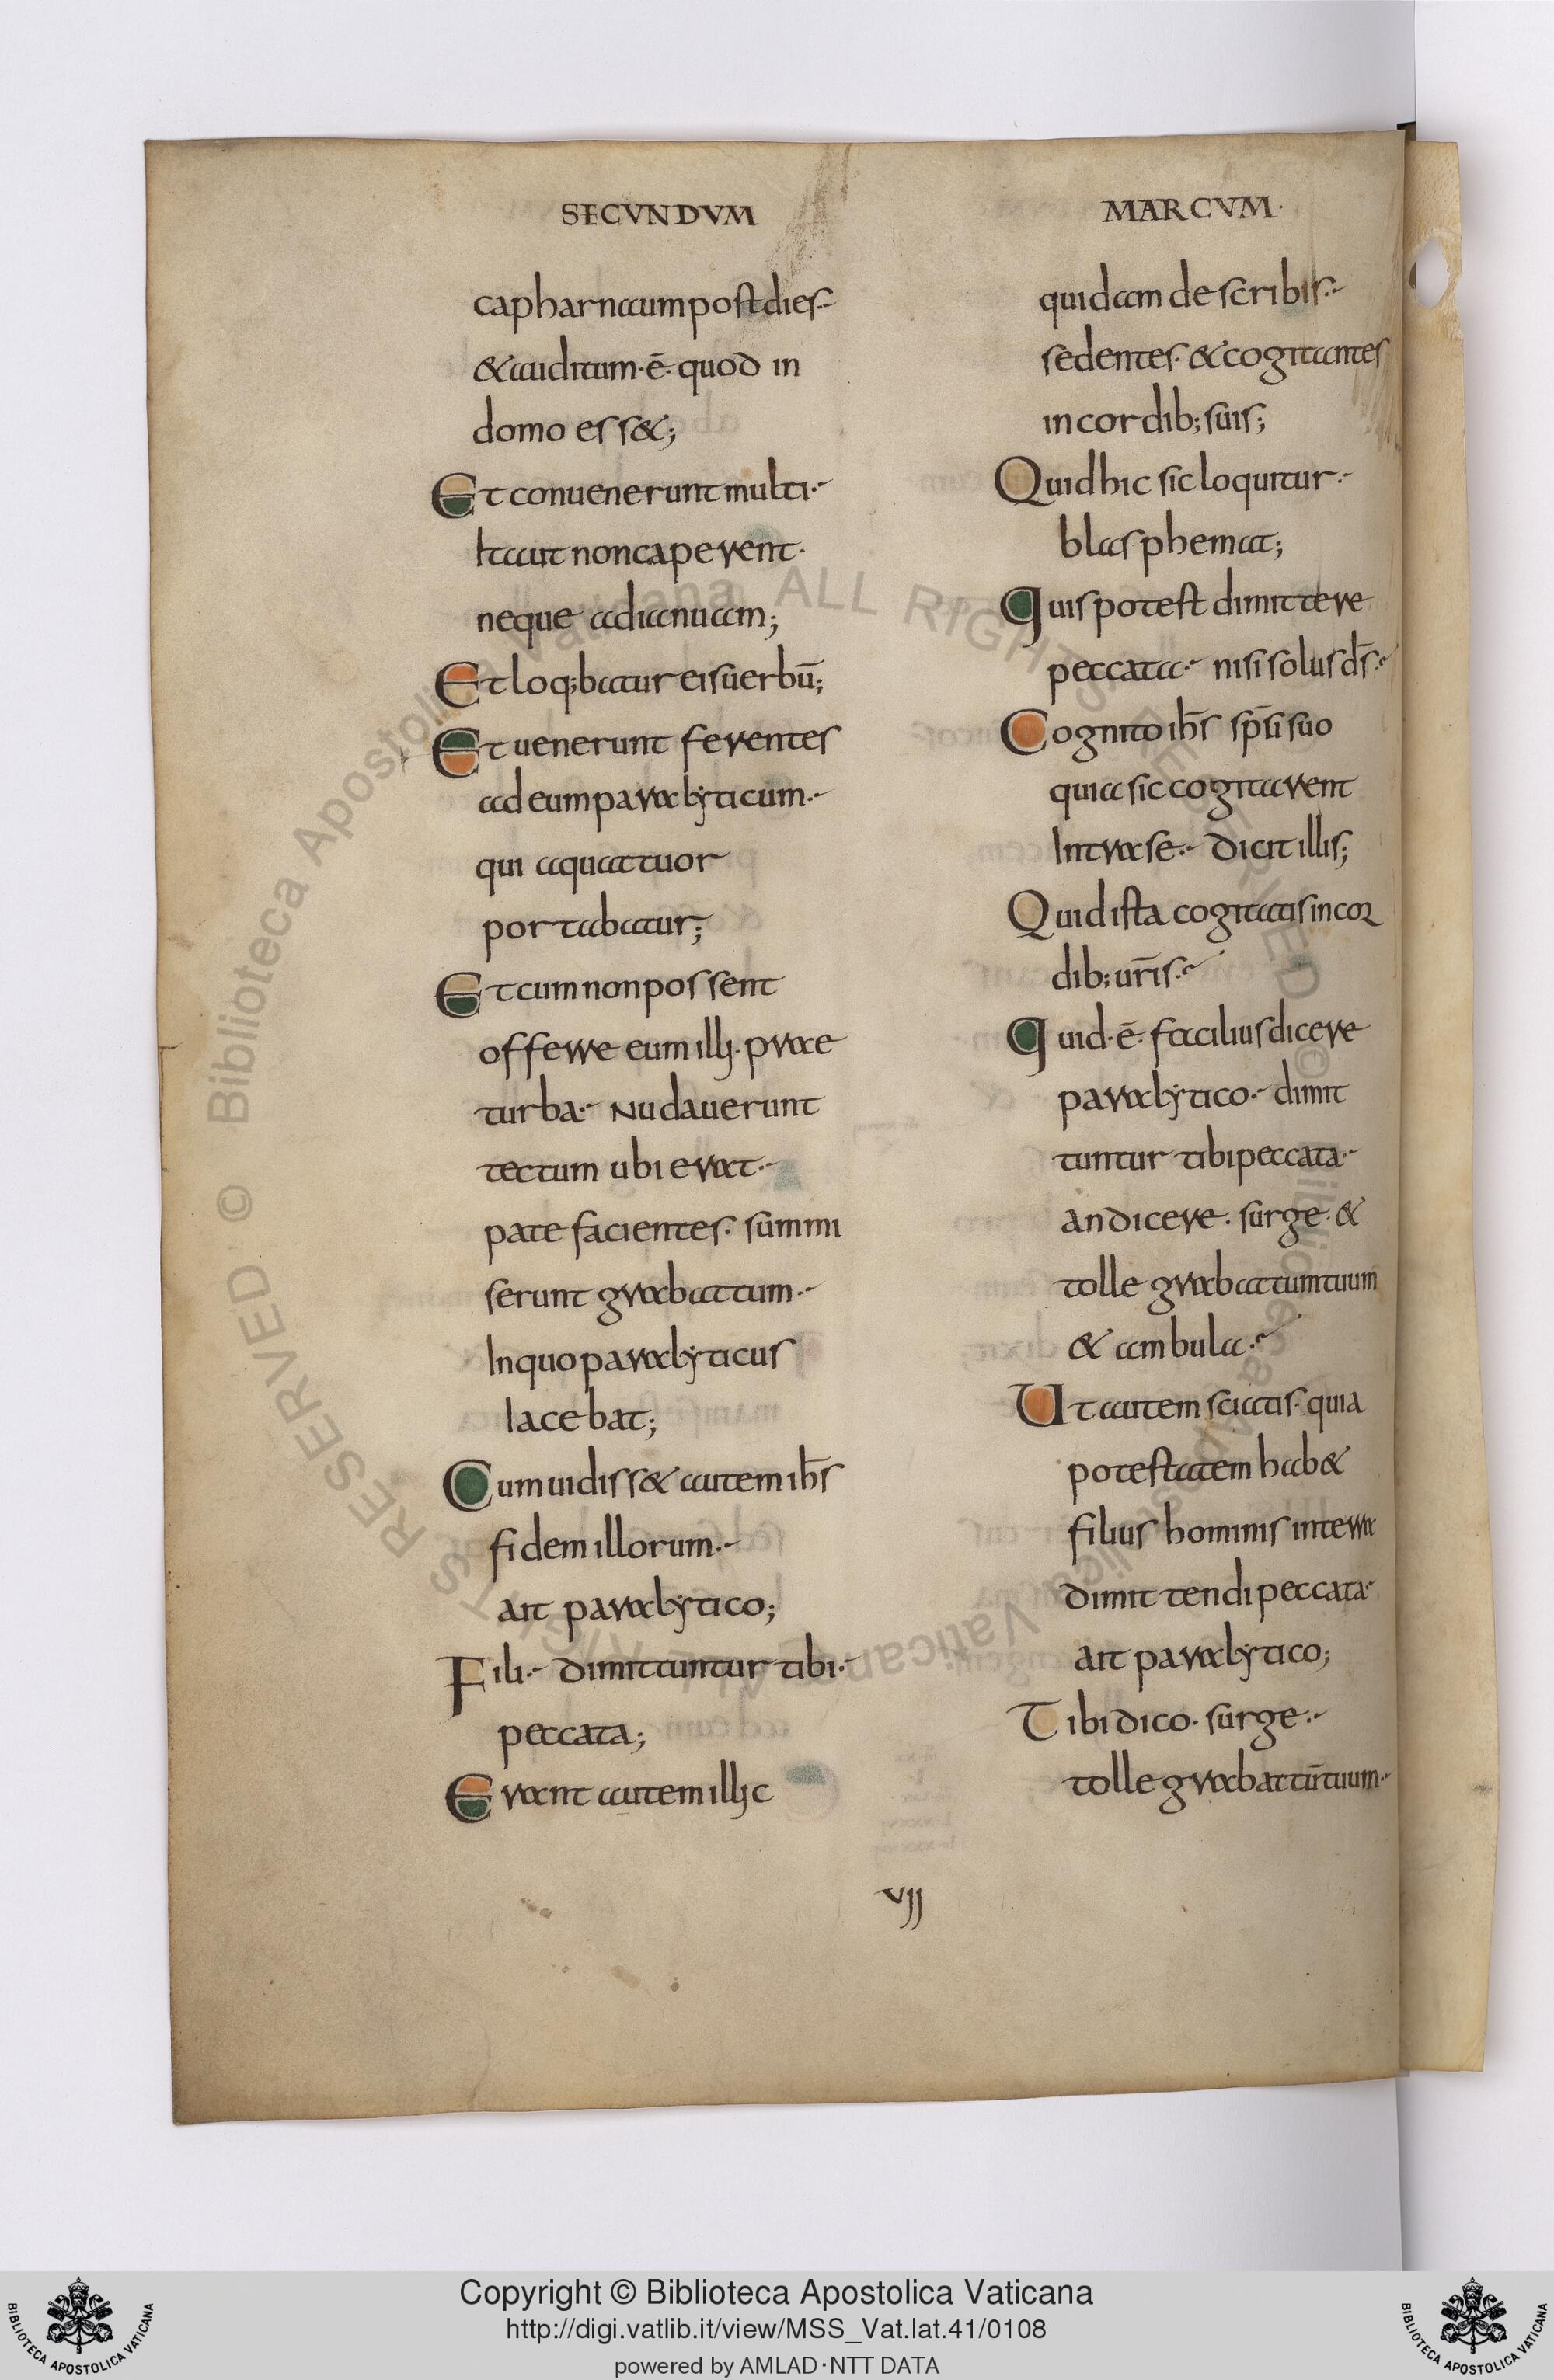 SECVNDVM
capharnaum post dies·
& auditum· ē· quod in
domo ess&;
Et conuenerunt multi·
Ita ut non caperent·
neque ad ianuam;
Et loq;batur eis uerbū;
Et uenerunt ferentes
ad eum paralyticum·
qui a quattuor
portabatur;
Et cum non possent
offerre eum illj· prae
turba· Nudauerunt
tectum ubi erat·
patefacientes· summi
serunt grabattum·
In quo paralyticus
Iacebat;
Cum uidiss& autem ih̄s
fidem illorum·
ait paralytico;
Fili· dimittuntur tibi·
peccata;
Erant autem illjc
MARCVM·
quidam de scribis·
sedentes· & cogitantes
in cordib; suis;
Quid hic sic loquitur·
blasphemat;
Quis potest dimittere
peccata· nisi solus d̄s·
Cognito ih̄s sp̄u suo
quia sic cogitarent
Intra se· dicit illis;
Quid ista cogitatis in cor
dib; ur̄is·
Quid· ē· facilius dicere
paralytico· dimit
tuntur tibi peccata·
an dicere· surge· &
tolle grabattum tuum
& ambula·
Ut autem sciatis· quia
potestatem hab&
filius hominis in terra
dimittendi peccata·
ait paralytico;
Tibi dico· surge·
tolle grabattū tuum·
vjj
© Biblioteca Apostolica Vaticana ALL RIGHTS RESERVED © Biblioteca Apostolica Vaticana ALL RIGHTS RESERVED
Copyright © Biblioteca Apostolica Vaticana
http://digi.vatlib.it/view/MSS_Vat.lat.41/0108
powered by AMLAD·NTT DATA
BIBLIOTECA APOSTOLICA VATICANA
BIBLIOTECA APOSTOLICA VATICANA